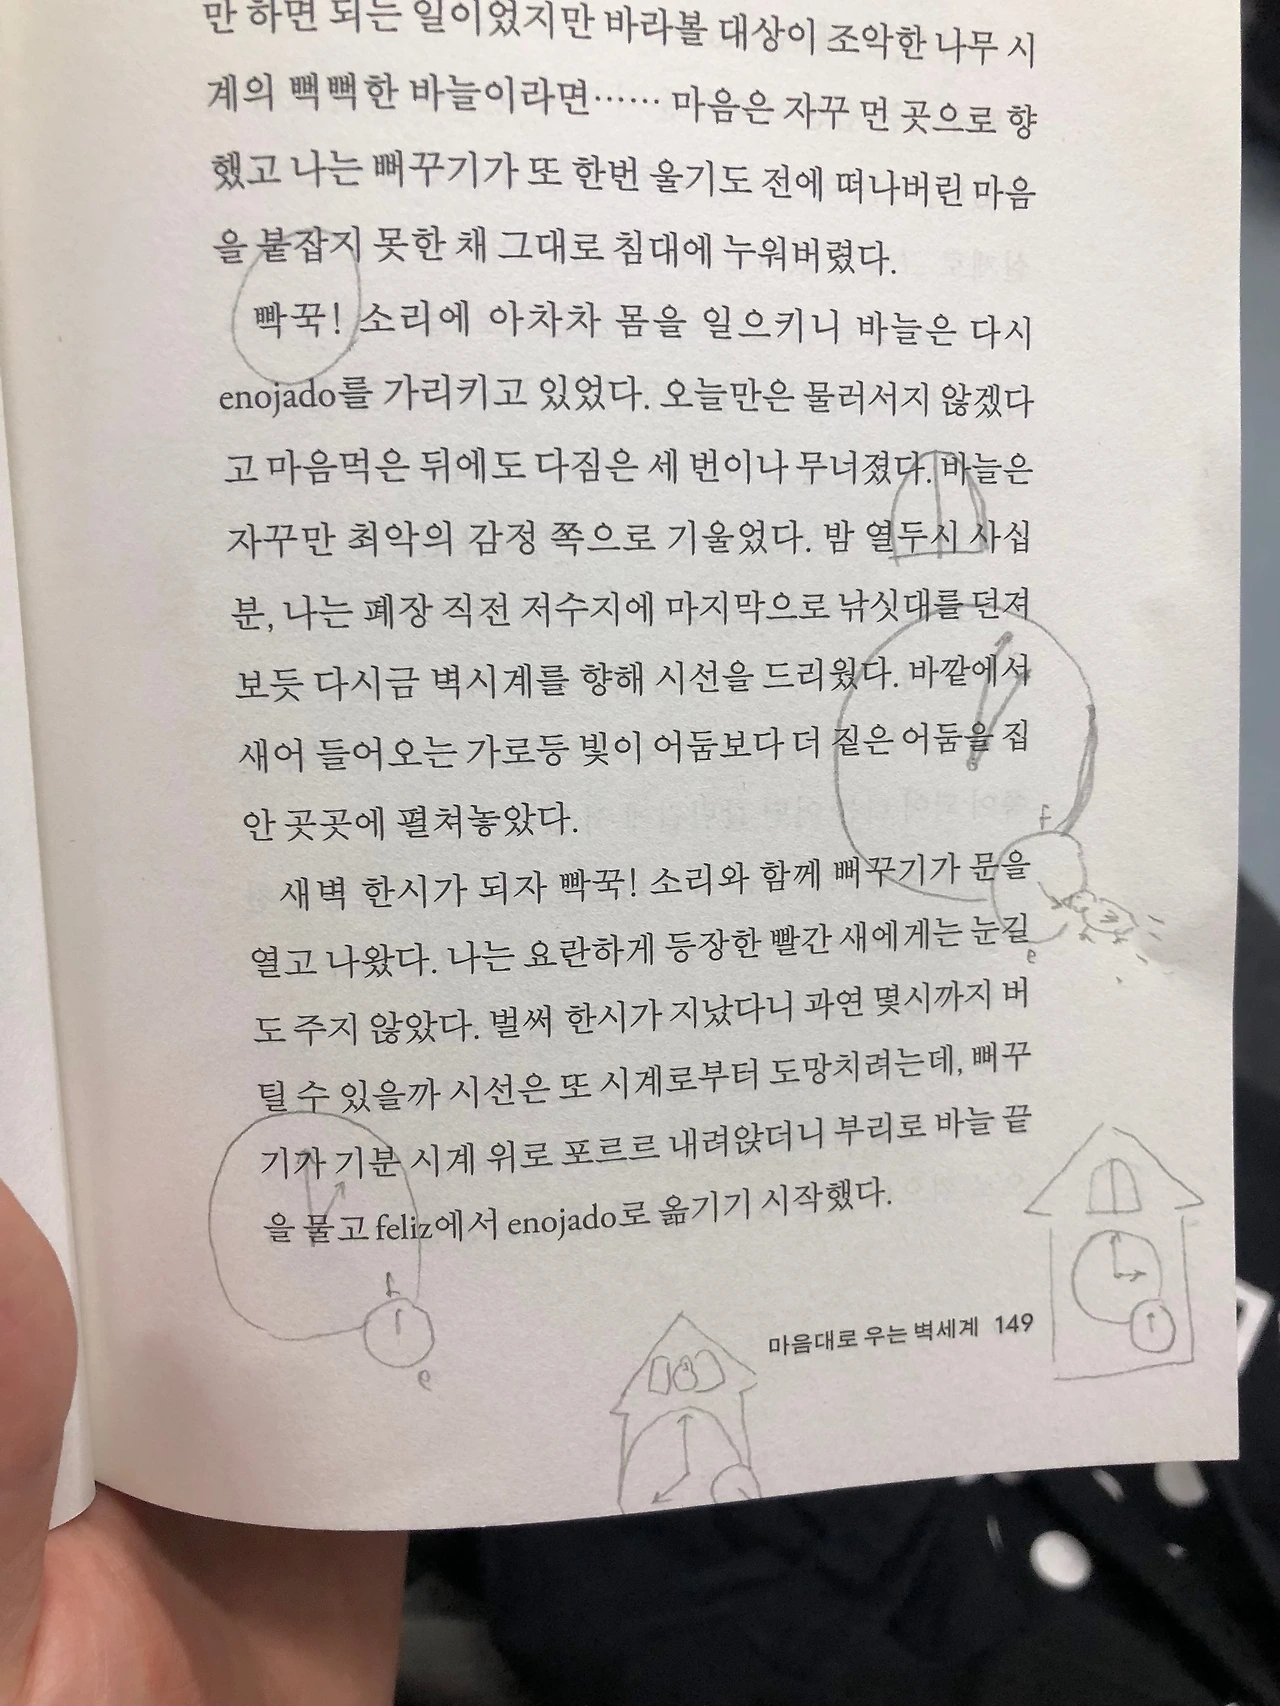 만 하면 되는 일이었지만 바라볼 대상이 조악한 나무 시
계의 뻑뻑한 바늘이라면…… 마음은 자꾸 먼 곳으로 향
했고 나는 뻐꾸기가 또 한번 울기도 전에 떠나버린 마음
을 붙잡지 못한 채 그대로 침대에 누워버렸다.
빡꾹! 소리에 아차차 몸을 일으키니 바늘은 다시
enojado를 가리키고 있었다. 오늘만은 물러서지 않겠다
고 마음먹은 뒤에도 다짐은 세 번이나 무너졌다. 바늘은
자꾸만 최악의 감정 쪽으로 기울었다. 밤 열두시 사십
분, 나는 폐장 직전 저수지에 마지막으로 낚싯대를 던져
보듯 다시금 벽시계를 향해 시선을 드리웠다. 바깥에서
새어 들어오는 가로등 빛이 어둠보다 더 짙은 어둠을 집
안 곳곳에 펼쳐놓았다.
새벽 한시가 되자 빡꾹! 소리와 함께 뻐꾸기가 문을
열고 나왔다. 나는 요란하게 등장한 빨간 새에게는 눈길
도 주지 않았다. 벌써 한시가 지났다니 과연 몇시까지 버
틸 수 있을까 시선은 또 시계로부터 도망치려는데, 뻐꾸
기가 기분 시계 위로 포르르 내려앉더니 부리로 바늘 끝
을 물고 feliz에서 enojado로 옮기기 시작했다.
마음대로 우는 벽세계 149